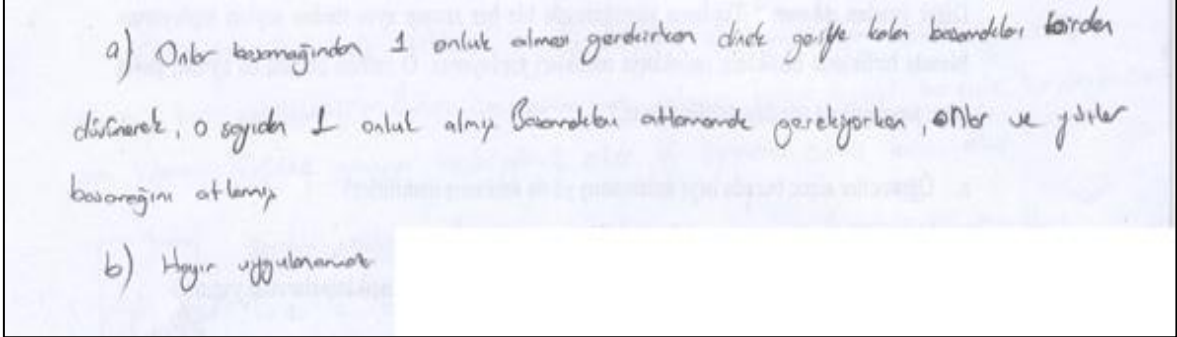 a) Onlar basamağından 1 onluk alması gerekirken direk geriye kalan basamakları birden
düşünerek, o sayıdan 1 onluk almış. Basamakları atlamamak gerekiyorken, onlar ve yüzler
basamağını atlamış
b) Hayır uygulanamaz